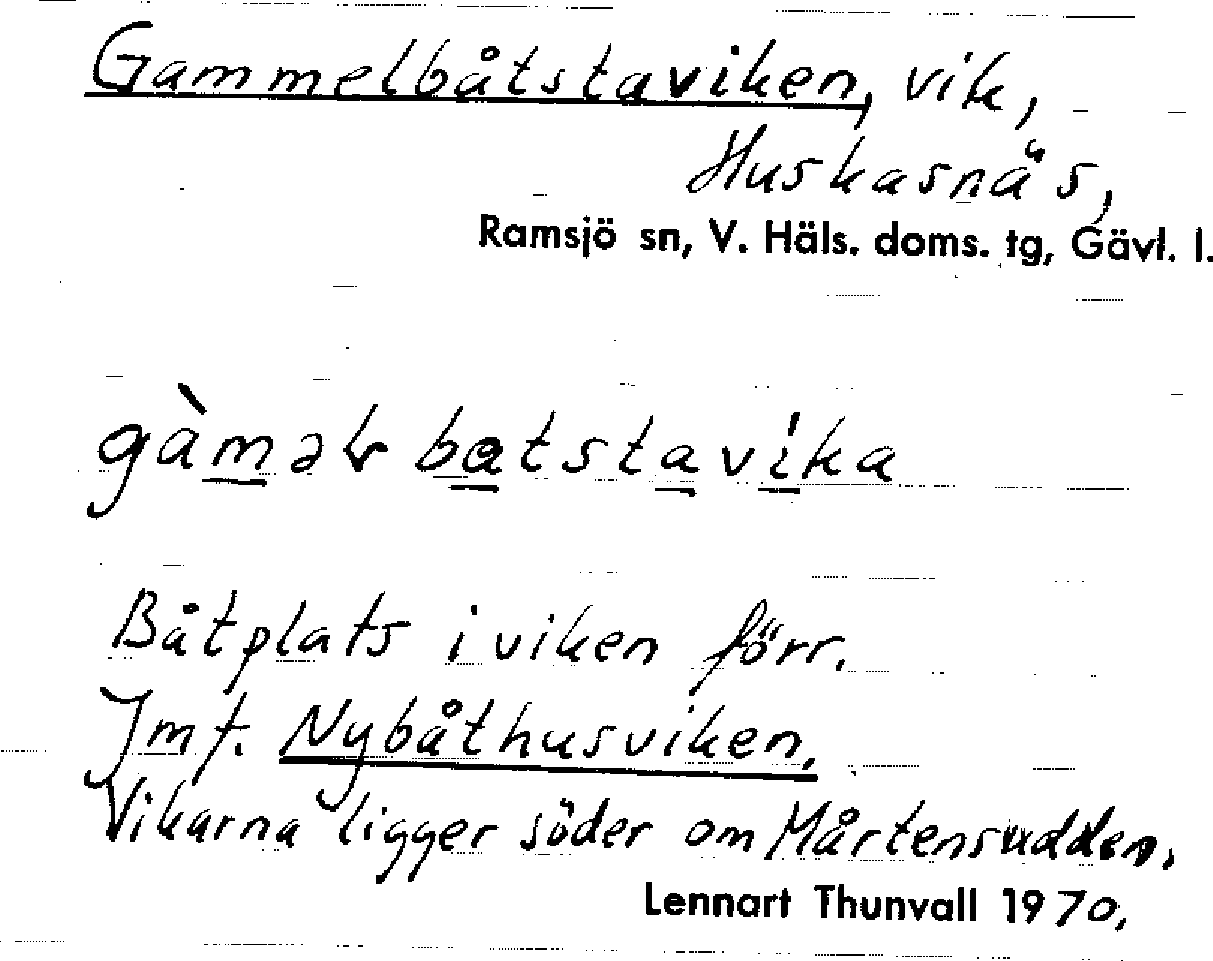 Gammelbåtstaviken, vik,
Huskasnäs,
Ramsjö sn, V. Häls. doms. tg, Gävl. l.
gàməl batstavika
Båtplats i viken förr.
Jmf. Nybåthusviken.
Vikarna ligger söder om Mårtensudden.
Lennart Thunvall 1970,